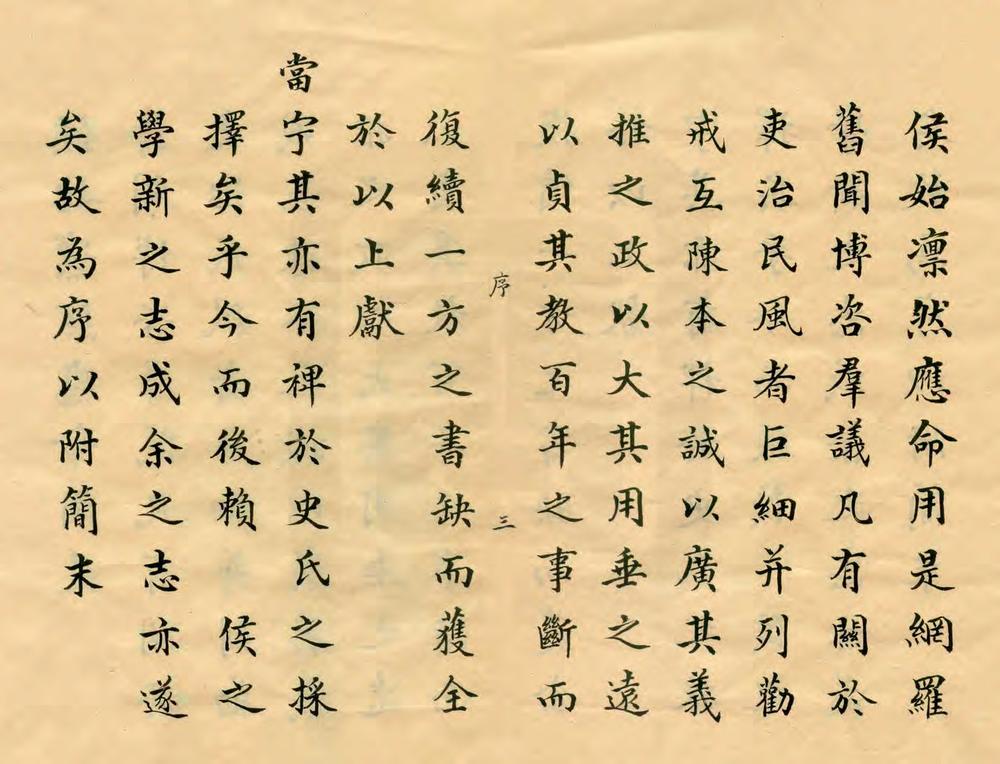 侯始凛然應命用是網羅
舊聞博咨羣議凡有關於
吏治民風者巨細并列勸
戒互陳本之誠以廣其義
推之政以大其用垂之遠
以貞其教百年之事斷而
序 三
復續一方之書缺而獲全
於以上獻
當宁其亦有裨於史氏之採
擇矣乎今而後賴 侯之
學新之志成余之志亦遂
矣故為序以附簡末